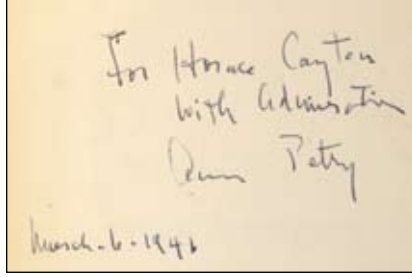 For Horace Cayton
with admiration
Ann Petry
March-6-1946